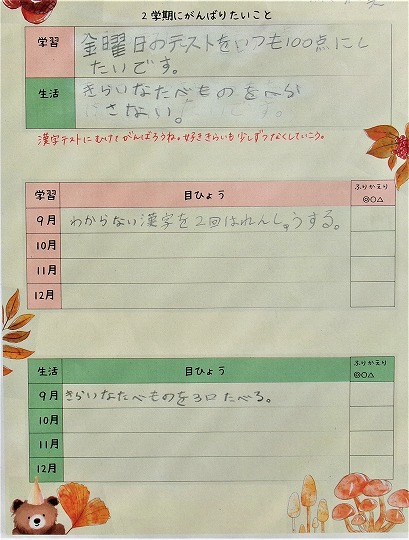 2学期にがんばりたいこと
学習
金曜日のテストをいつも100点にし
たいです。
生活
きらいなたべものをへら
さない。
漢字テストにむけてがんばろうね。好ききらいも少しずつなくしていこう。
学習 目ひょう ふりかえり
◎○△
9月 わからない漢字を2回はれんしゅうする。
10月
11月
12月
生活 目ひょう ふりかえり
◎○△
9月 きらいなたべものを3口たべる。
10月
11月
12月